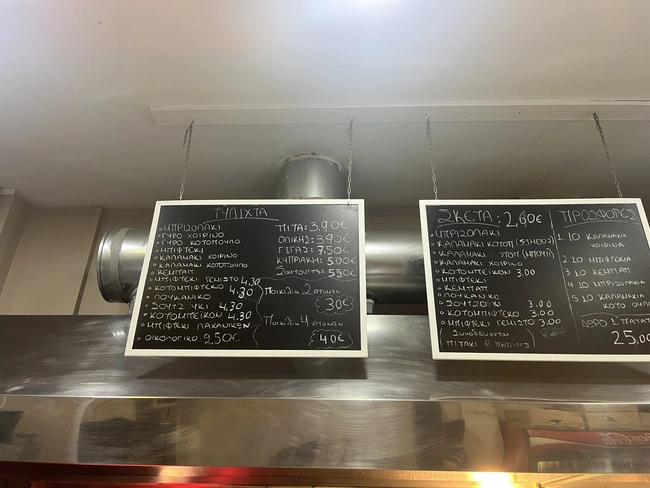 ΤΥΛΙΧΤΑ
ΜΠΡΙΖΟΛΑΚΙ
ΓΥΡΟ ΧΟΙΡΙΝΟ
ΓΥΡΟ ΚΟΤΟΠΟΥΛΟ
ΜΠΙΦΤΕΚΙ
ΚΑΛΑΜΑΚΙ ΧΟΙΡΙΝΟ
ΚΑΛΑΜΑΚΙ ΚΟΤΟΠΟΥΛΟ
ΚΕΜΠΑΠ
ΜΠΙΦΤΕΚΙ ΓΕΜΙΣΤΟ 4.30
ΚΟΤΟΜΠΙΦΤΕΚΟ 4.30
ΛΟΥΚΑΝΙΚΟ
ΣΟΥΤΖΟΥΚΙ 4.30
ΚΟΤΟΜΠΕΙΚΟΝ 4.30
ΜΠΙΦΤΕΚΙ ΛΑΧΑΝΙΚΩΝ
ΟΙΚΟΛΟΓΙΚΟ: 2,50€
ΠΙΤΑ: 3.90€
ΟΛΙΚΗΣ: 3.95€
ΓΙΓΑΣ: 7,50€
ΚΥΠΡΙΑΚΗ: 5.00€
5.50€
Ποικιλία 2 ατόμων
30€
Ποικιλία 4 ατόμων
40€
ΣΚΕΤΑ: 2,60€
ΜΠΡΙΖΟΛΑΚΙ
ΚΑΛΑΜΑΚΙ ΚΟΤΟΠ (ΣΤΗΘΟΣ)
ΚΑΛΑΜΑΚΙ ΚΟΤΟΠ (ΜΠΟΥΤΙ)
ΚΑΛΑΜΑΚΙ ΧΟΙΡΙΝΟ
ΚΟΤΟΜΠΕΙΚΟΝ 3.00
ΜΠΙΦΤΕΚΙ
ΚΕΜΠΑΠ
ΛΟΥΚΑΝΙΚΟ
ΣΟΥΤΖΟΥΚΙ 3.00
ΚΟΤΟΜΠΙΦΤΕΚΟ 3.00
ΜΠΙΦΤΕΚΙ ΓΕΜΙΣΤΟ 3.00
Συνοδεύονται
ΠΙΤΑΚΙ
ΠΡΟΣΦΟΡΕΣ
1 10 ΚΑΛΑΜΑΚΙΑ
ΧΟΙΡΙΝΑ
2 10 ΜΠΙΦΤΕΚΙΑ
3 10 ΚΕΜΠΑΠ
4 10 ΜΠΡΙΖΟΛΑΚΙΑ
5 10 ΚΑΛΑΜΑΚΙΑ
ΚΟΤΟΠΟΥΛΟ
ΔΩΡΟ 1 ΠΑΤΑΤ
25.00